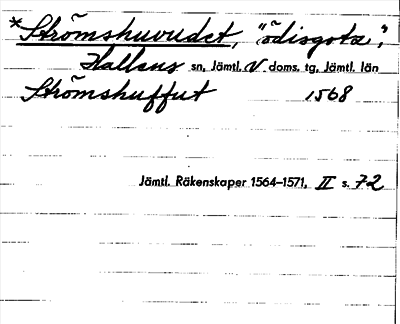 *Strömshuvudet, "ödisgota",
Hallens sn, Jämtl. V doms. tg, Jämtl. län
Strömshuffut 1568
Jämtl. Räkenskaper 1564–1571, II s. 72